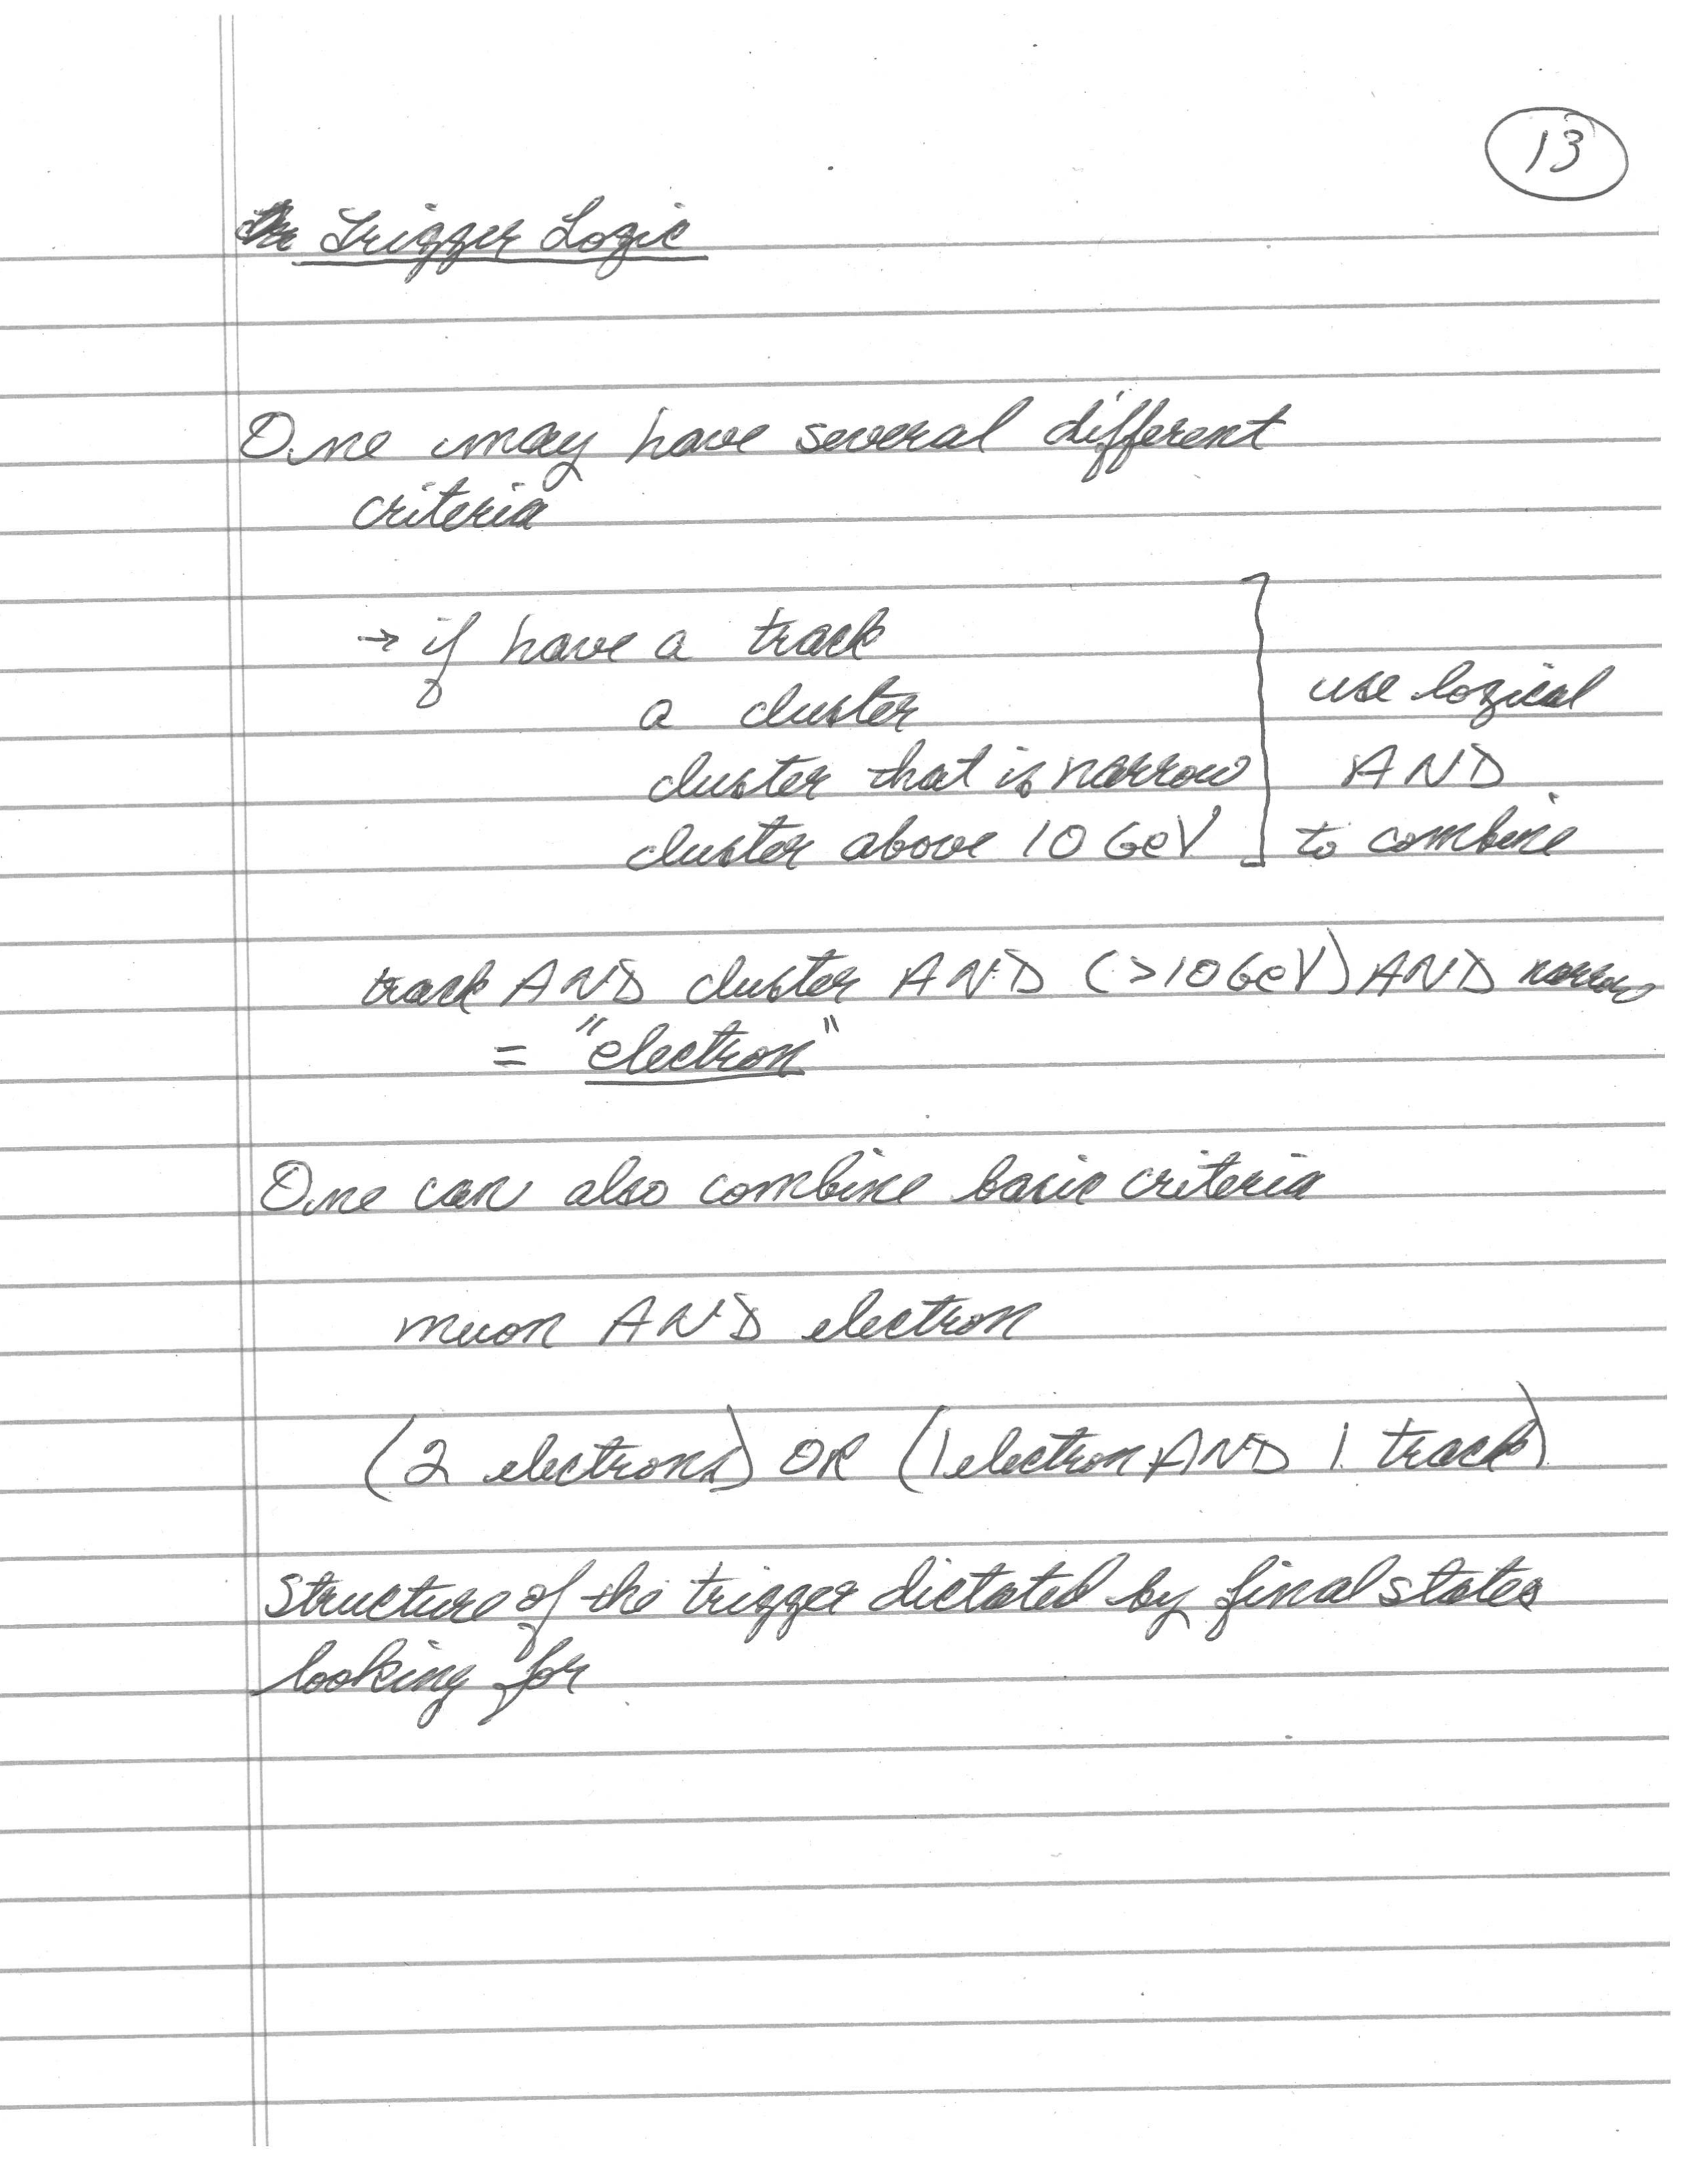 13
Trigger Logic
One may have several different
criteria
→ if have a track
a cluster
cluster that is narrow
cluster above 10 GeV
use logical
AND
to combine
track AND cluster AND (>10 GeV) AND narrow
= "electron"
One can also combine basic criteria
muon AND electron
(2 electrons) OR (1 electron AND 1 track)
Structure of the trigger dictated by final states
looking for